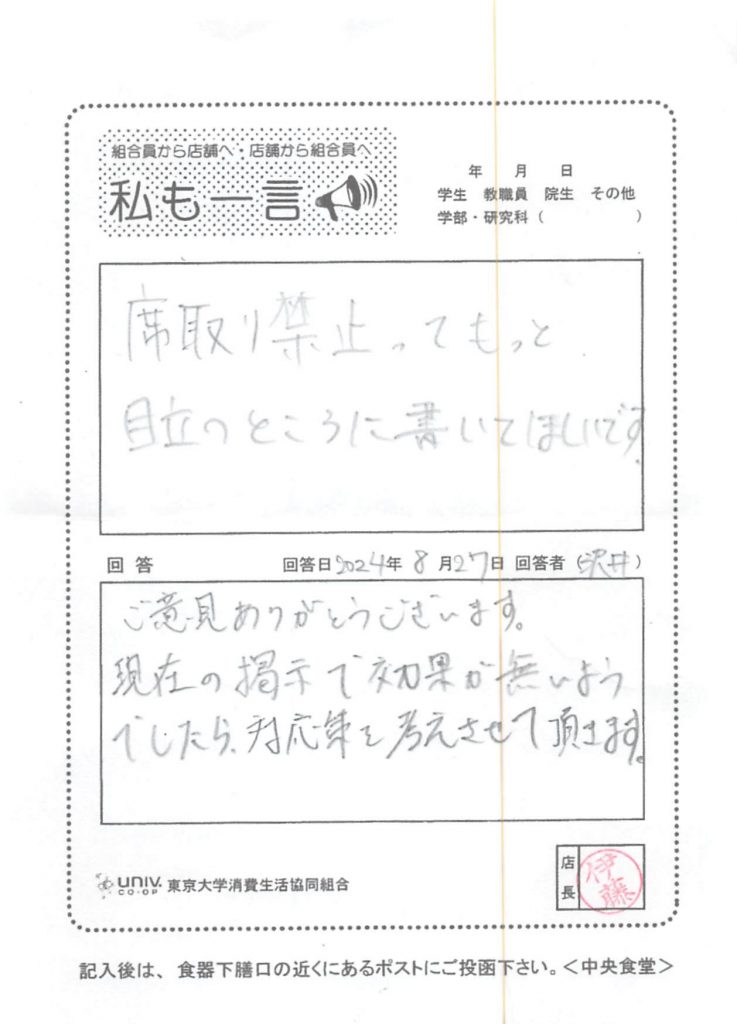 組合員から店舗へ・店舗から組合員へ
私も一言
年 月 日
学生 教職員 院生 その他
学部・研究科( )
席取り禁止ってもっと
目立つところに書いてほしいです。
回答 回答日2024年8月27日 回答者(沢井)
ご意見ありがとうございます。
現在の掲示で効果が無いよう
でしたら、対応策を考えさせて頂きます。
UNIV. CO-OP 東京大学消費生活協同組合
店長 伊藤
記入後は、食器下膳口の近くにあるポストにご投函下さい。<中央食堂>